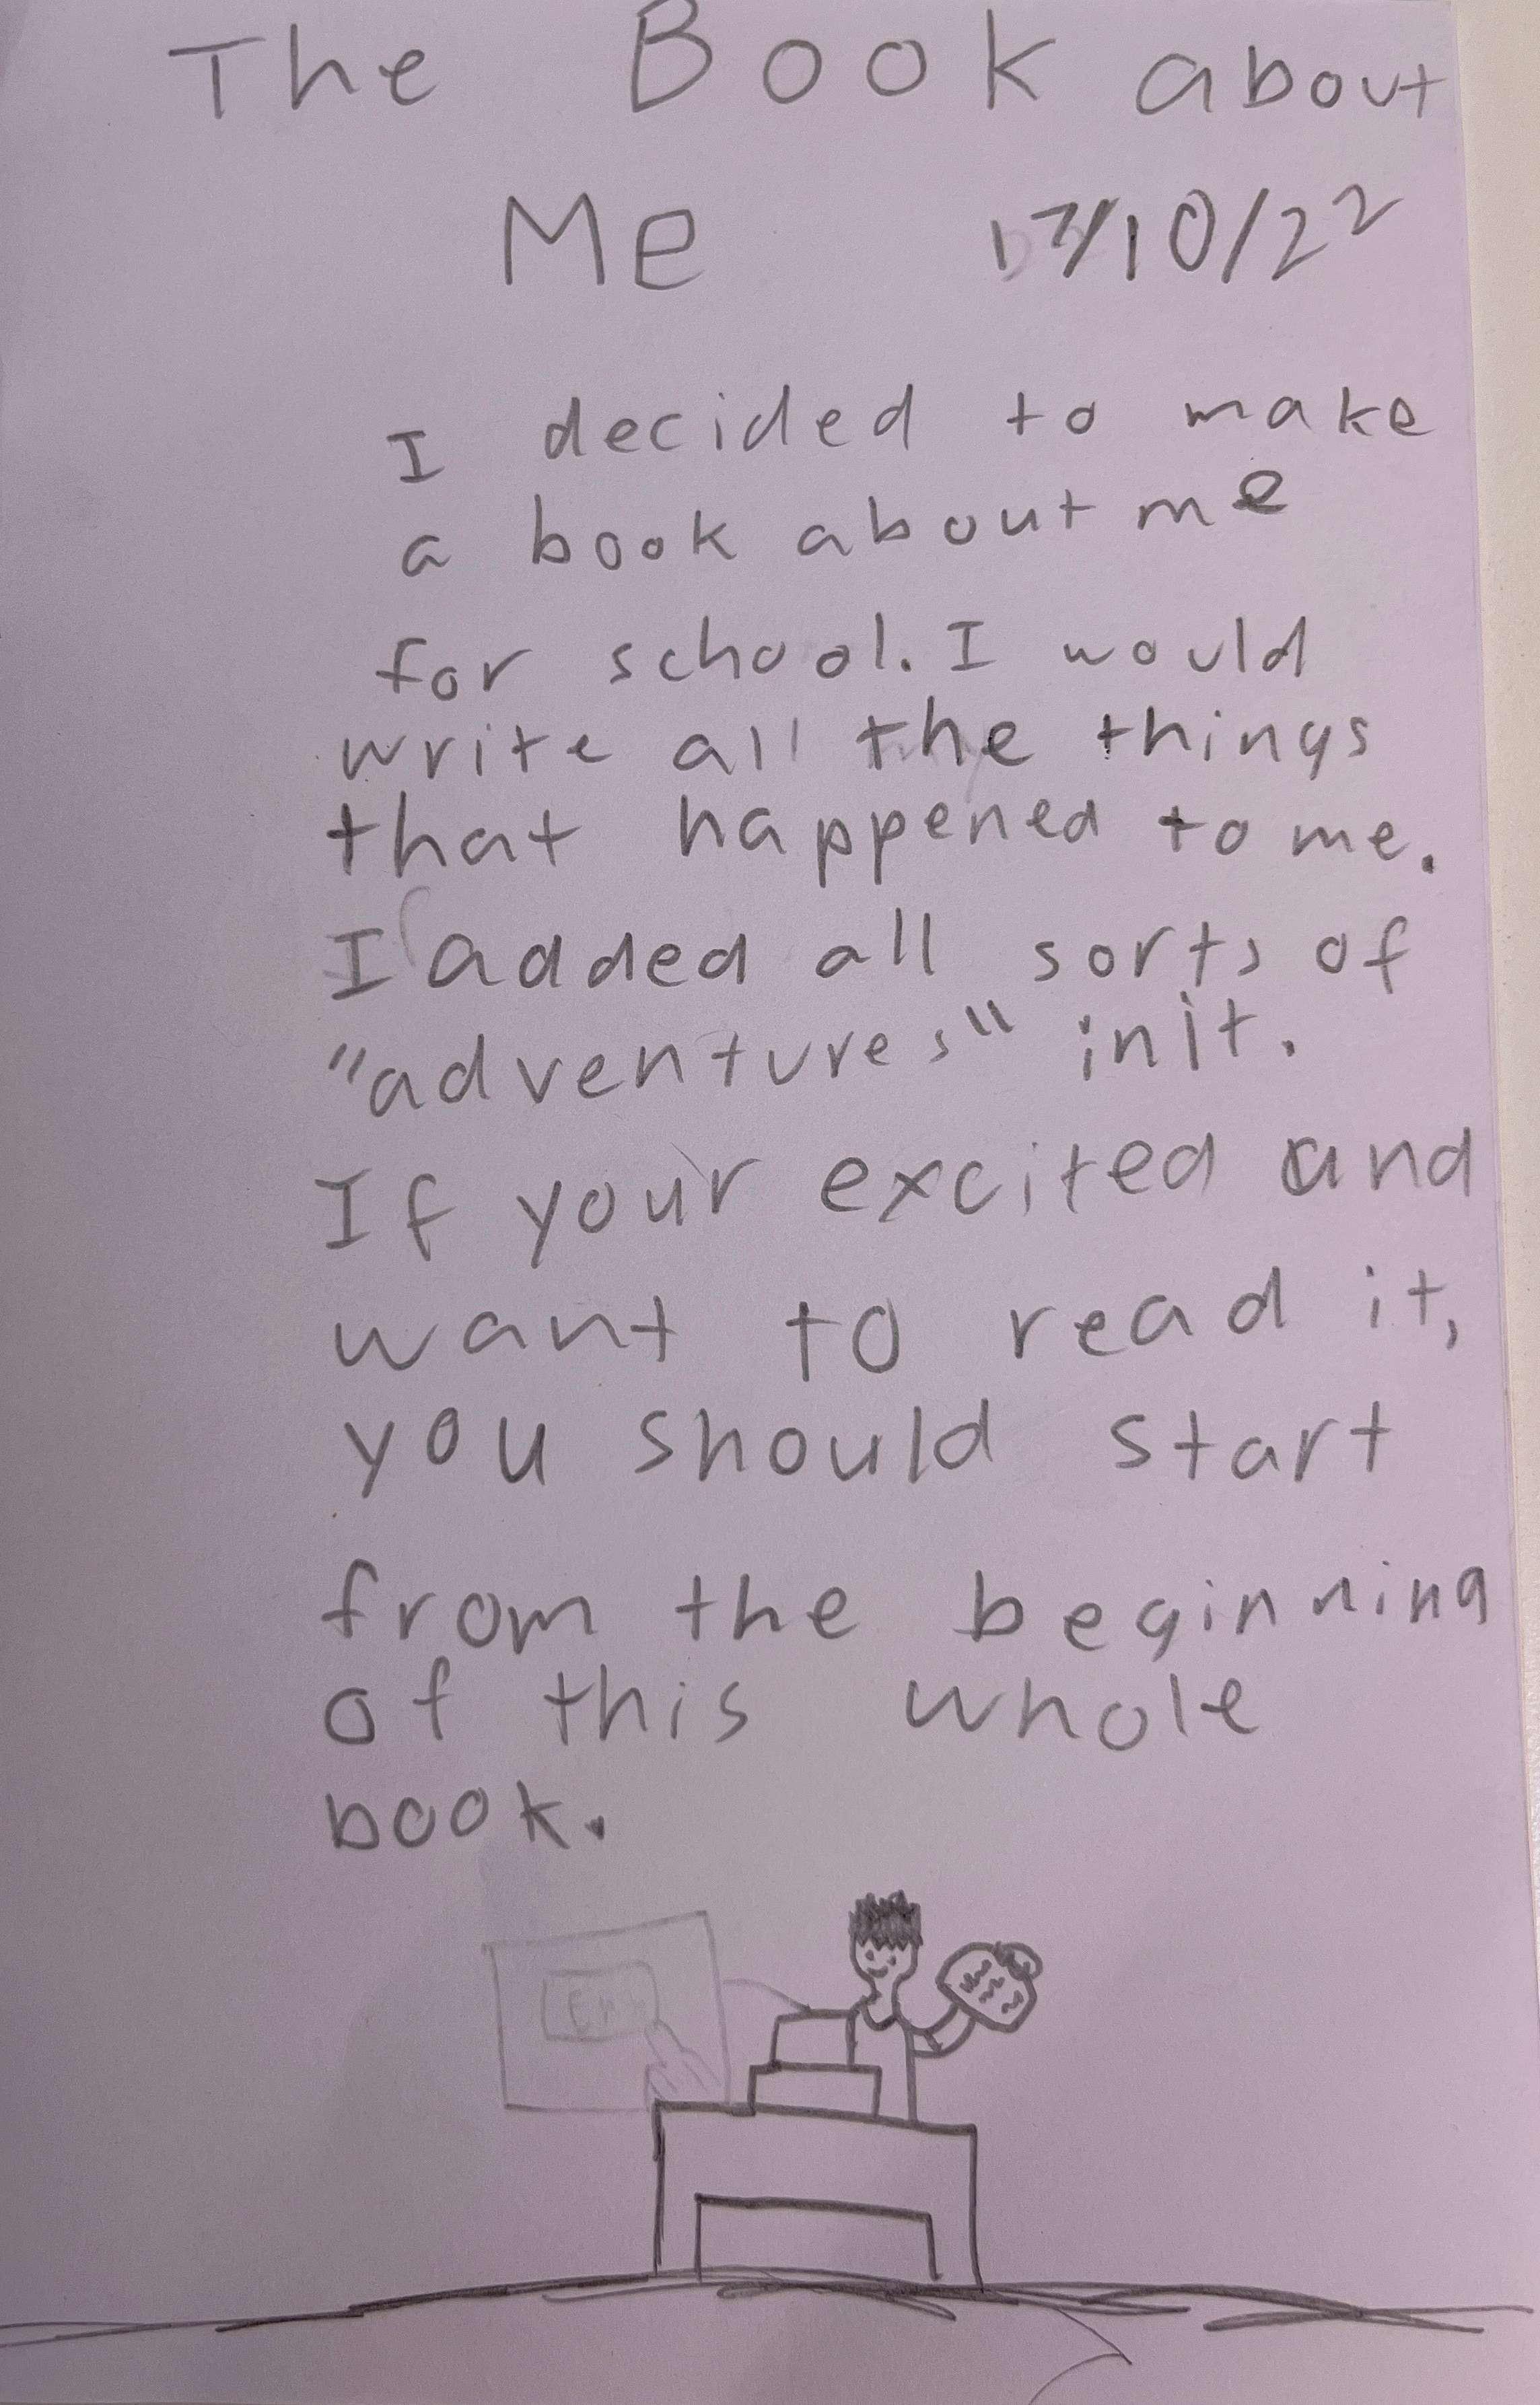 The Book about
Me 17/10/22
I decided to make
a book about me
for school. I would
write all the things
that happened to me.
I added all sorts of
"adventures" in it.
If your excited and
want to read it,
you should start
from the beginning
of this whole
book.